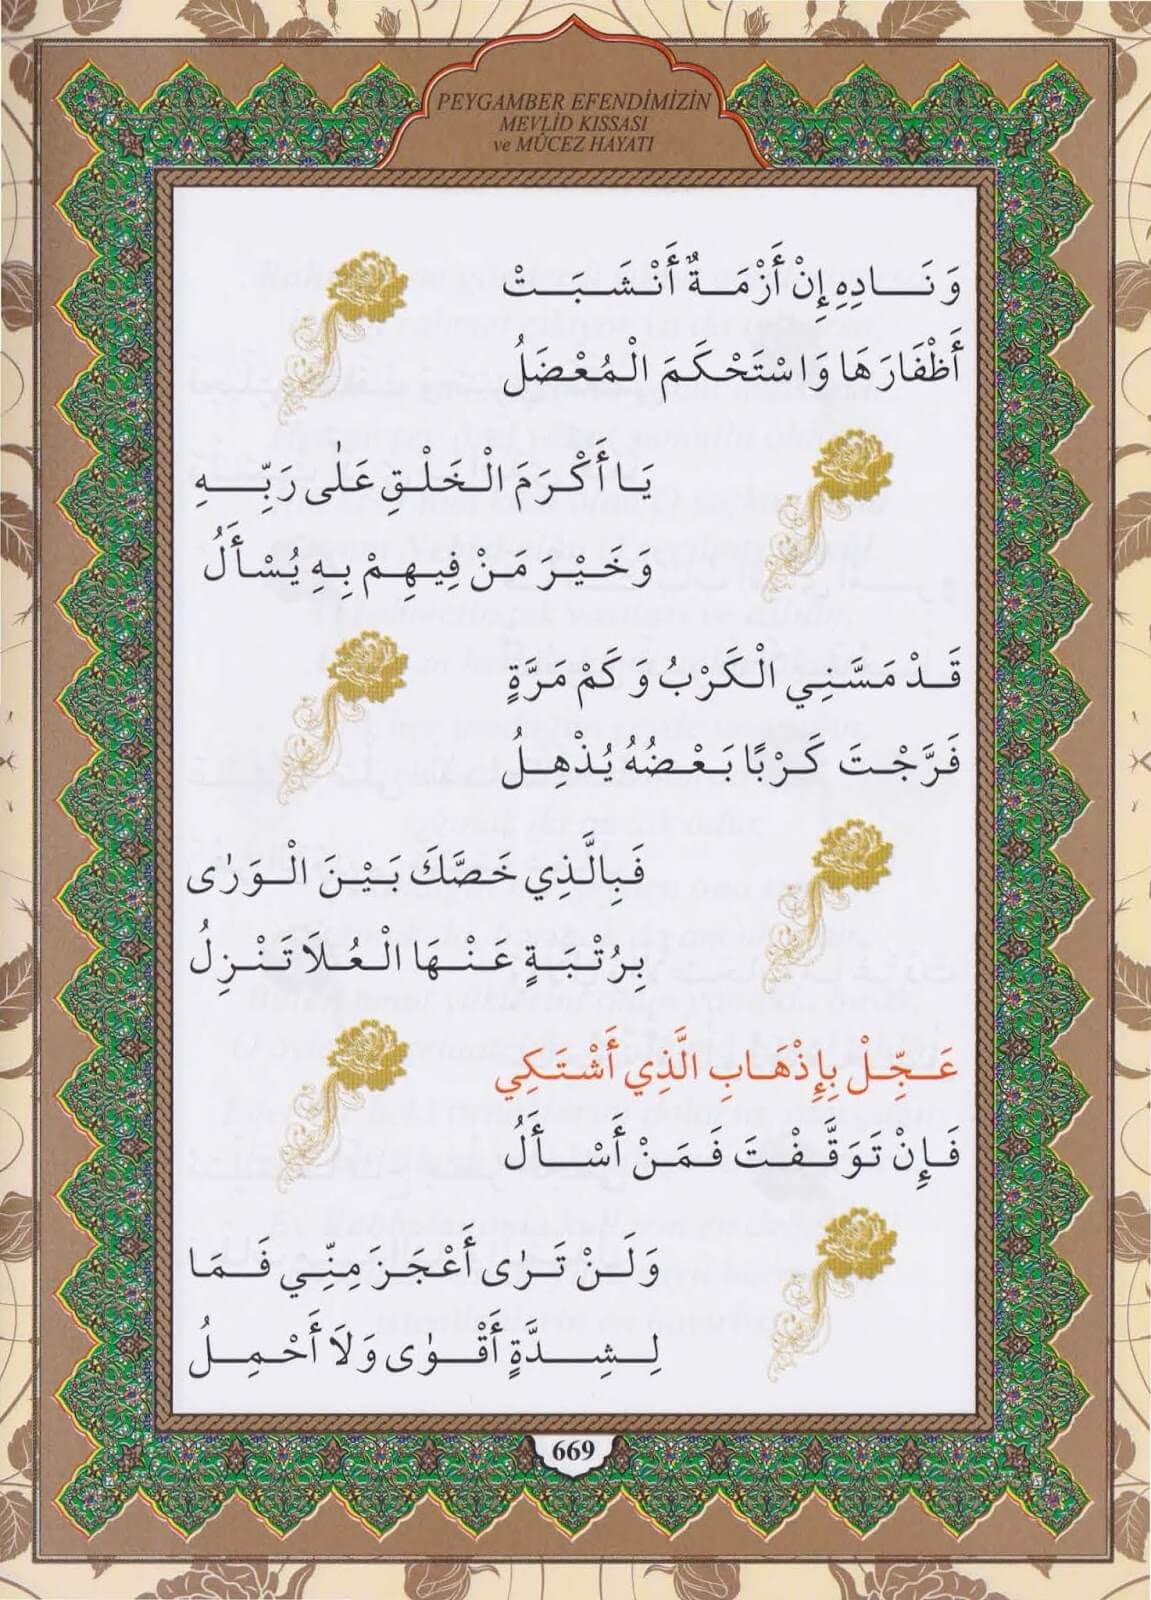 PEYGAMBER EFENDİMİZİN
MEVLİD KISSASI
ve MÛCEZ HAYATI
وَنَادِهِ إِنْ أَزْمَةٌ أَنْشَبَتْ
أَظْفَارَهَا وَاسْتَحْكَمَ الْمُعْضَلُ
يَا أَكْرَمَ الْخَلْقِ عَلٰى رَبِّهِ
وَخَيْرَ مَنْ فِيهِمْ بِهِ يُسْأَلُ
قَدْ مَسَّنِي الْكَرْبُ وَكَمْ مَرَّةٍ
فَرَّجْتَ كَرْبًا بَعْضُهُ يُذْهِلُ
فَبِالَّذِي خَصَّكَ بَيْنَ الْوَرٰى
بِرُتْبَةٍ عَنْهَا الْعُلَا تَنْزِلُ
عَجِّلْ بِإِذْهَابِ الَّذِي أَشْتَكِي
فَإِنْ تَوَقَّفْتَ فَمَنْ أَسْأَلُ
وَلَنْ تَرٰى أَعْجَزَ مِنِّي فَمَا
لِشِدَّةٍ أَقْوٰى وَلَا أَحْمِلُ
669